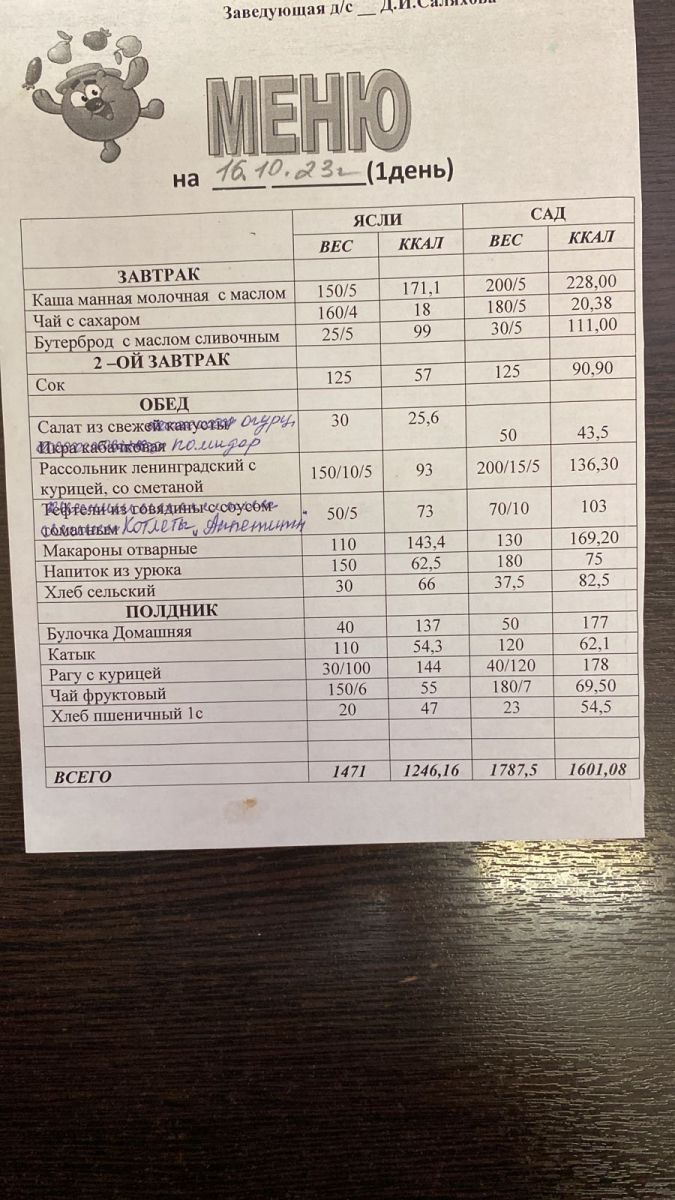 Заведующая д/с __ Д.И.Саляхова
МЕНЮ
на 16.10.23г (1день)
ЯСЛИ САД
ВЕС ККАЛ ВЕС ККАЛ
ЗАВТРАК
Каша манная молочная с маслом 150/5 171,1 200/5 228,00
Чай с сахаром 160/4 18 180/5 20,38
Бутерброд с маслом сливочным 25/5 99 30/5 111,00
2 –ОЙ ЗАВТРАК
Сок 125 57 125 90,90
ОБЕД
Салат из свежей капусты огурц, 30 25,6
Икра кабачковая помидор 50 43,5
Рассольник ленинградский с
курицей, со сметаной 150/10/5 93 200/15/5 136,30
Тефтели из говядины с соусом
томатным Котлеты „Аппетитн" 50/5 73 70/10 103
Макароны отварные 110 143,4 130 169,20
Напиток из урюка 150 62,5 180 75
Хлеб сельский 30 66 37,5 82,5
ПОЛДНИК
Булочка Домашняя 40 137 50 177
Катык 110 54,3 120 62,1
Рагу с курицей 30/100 144 40/120 178
Чай фруктовый 150/6 55 180/7 69,50
Хлеб пшеничный 1с 20 47 23 54,5
ВСЕГО 1471 1246,16 1787,5 1601,08